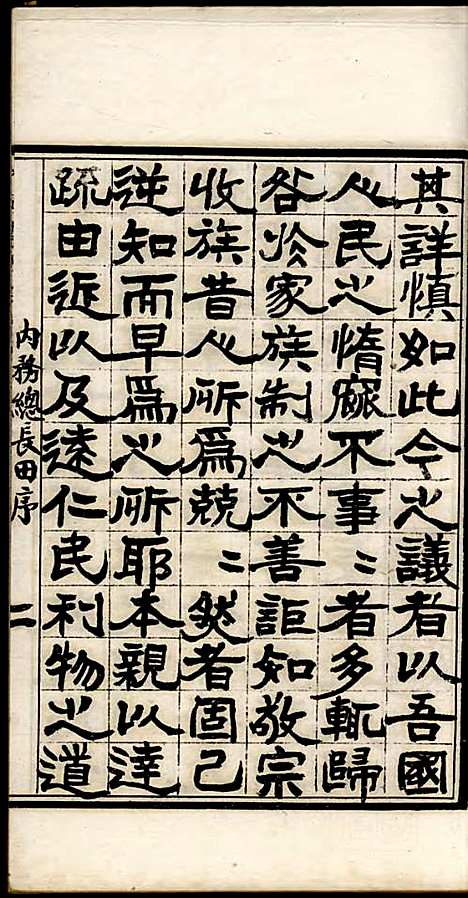 其詳慎如此今之議者以吾國
人民之惰窳不事﹦者多輒歸
咎於家族制之不善詎知敬宗
收族昔人所為兢﹦然者固已
逆知而早為之所耶本親以達
疏由近以及遠仁民利物之道
內務總長田序
二